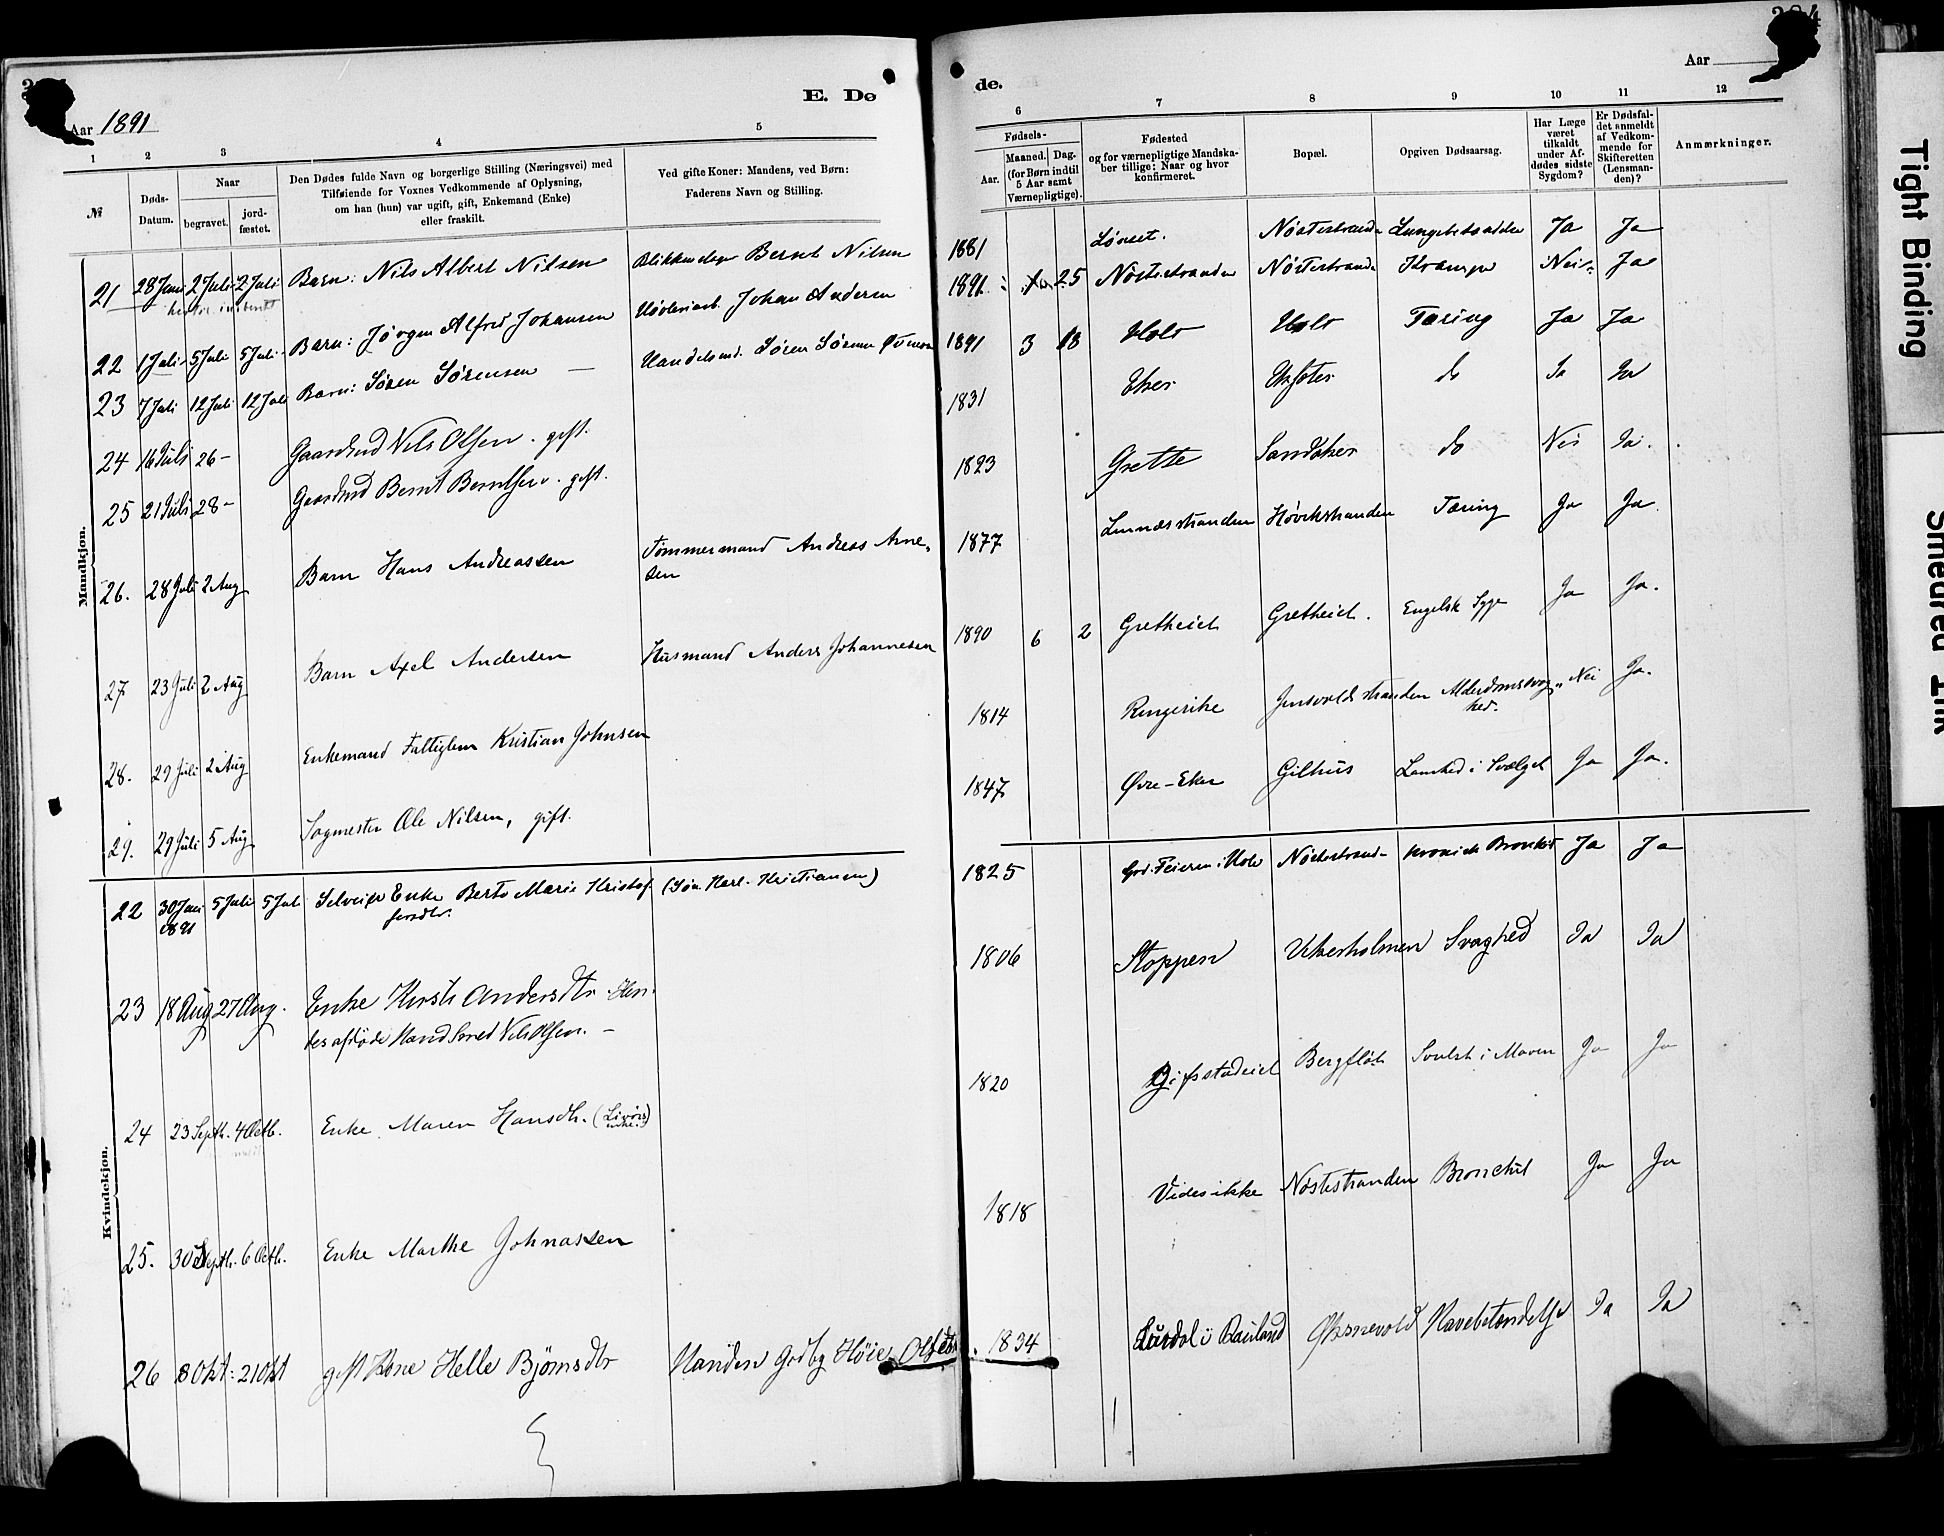 Aar 1891
E. Dø
de.
Aar
1
2
3
4
5
6
7
8
9
10
11
12
№
Døds-Datum.
Naar
begravet.
jord-fæstet.
Den Dødes fulde Navn og borgerlige Stilling (Næringsvei) med
Tilføiende for Voxnes Vedkommende af Oplysning,
om han (hun) var ugift, gift, Enkemand (Enke)
eller fraskilt.
Ved gifte Koner: Mandens, ved Børn:
Faderens Navn og Stilling.
Fødsels-
Aar.
Maaned.
Dag.
(for Børn indtil
5 Aar samt
Værnepligtige).
Fødested
og for værnepligtige Mandska-
ber tillige: Naar og hvor
konfirmeret.
Bopæl.
Opgiven Dødsaarsag.
Har Læge
været
tilkaldt
under Af-
dødes sidste
Sygdom?
Er Dødsfal-
det anmeldt
af Vedkom-
mende for
Skifteretten
(Lensman-
den)?
Anmærkninger.
Mandkjøn.
21 28 Juni 2 Juli 2 Juli Barn: Nils Albert Nilsen Bernt Nilsen 1881 Lønset. Ja Ja
22 1 Juli 5 Juli 5 Juli Barn: Jørgen Alfred Johansen Johan Andersen 1891 25 Nøstestranden Nøstestrand Krampe Nei Ja
23 7 Juli 12 Juli 12 Juli Barn: Søren Sørensen Søren 1891 3 18 Holt Holt Tæring Ja Ja
24 16 Juli 26 – Gaardmd Nils Olsen. gift. 1831 Eker do Ja Ja
25 21 Juli 28 – Gaardmd Bernt Berntsen. gift. 1823 Grette Sandaker do Nei Ja.
26. 28 Juli 2 Aug Barn Hans Andreassen Tømmermand Andreas Arne-
sen 1877 Linnæsstranden Høvikstranden Tæring Ja Ja.
27. 23 Juli 2 Aug Barn Axel Andersen Husmand Anders Johannesen 1890 6 2 Gretheiet Gretheiet. Engelsk Syge Ja Ja.
28. 29 Juli 2 Aug Enkemand Fattiglem Kristian Johnsen 1814 Ringerike Alderdomssvag-
hed. Nei Ja.
29. 29 Juli 5 Aug Sagmester Ole Nilsen, gift. 1847 Øvre-Eker Gilhus Lamhed i Svælget Ja Ja.
Kvindekjøn.
22 30 Juni
1891 5 Juli 5 Jul Enke Berte Marie Kristof-
fersdtr. (Søn Karl Kristiansen) 1825 Nøstestrand kronisk Bronkit Ja Ja
23 18 Aug 27 Aug. Enke Kirsti Andersdtr. Hen-
des afdøde Mand Smed Nils Olsen. – 1806 Stoppen Ukersholmen Svaghed Ja Ja
24 23 Septb. 4 Octb. Enke Maren Hansdtr. 1820 Bergflöt Svulst i Maven Ja Ja
25. 30 Septb. 6 Octb. Enke Marthe Johnassen 1818 Vides ikke Nøstestranden Bronchit Ja Ja
26 8 Okt: 21 Okt gift Kone Helle Bjørnsdtr Manden Gdbg Høie 1834 i Rauland Mavebetændelse Ja Ja
Tight Binding
Smeared Ink